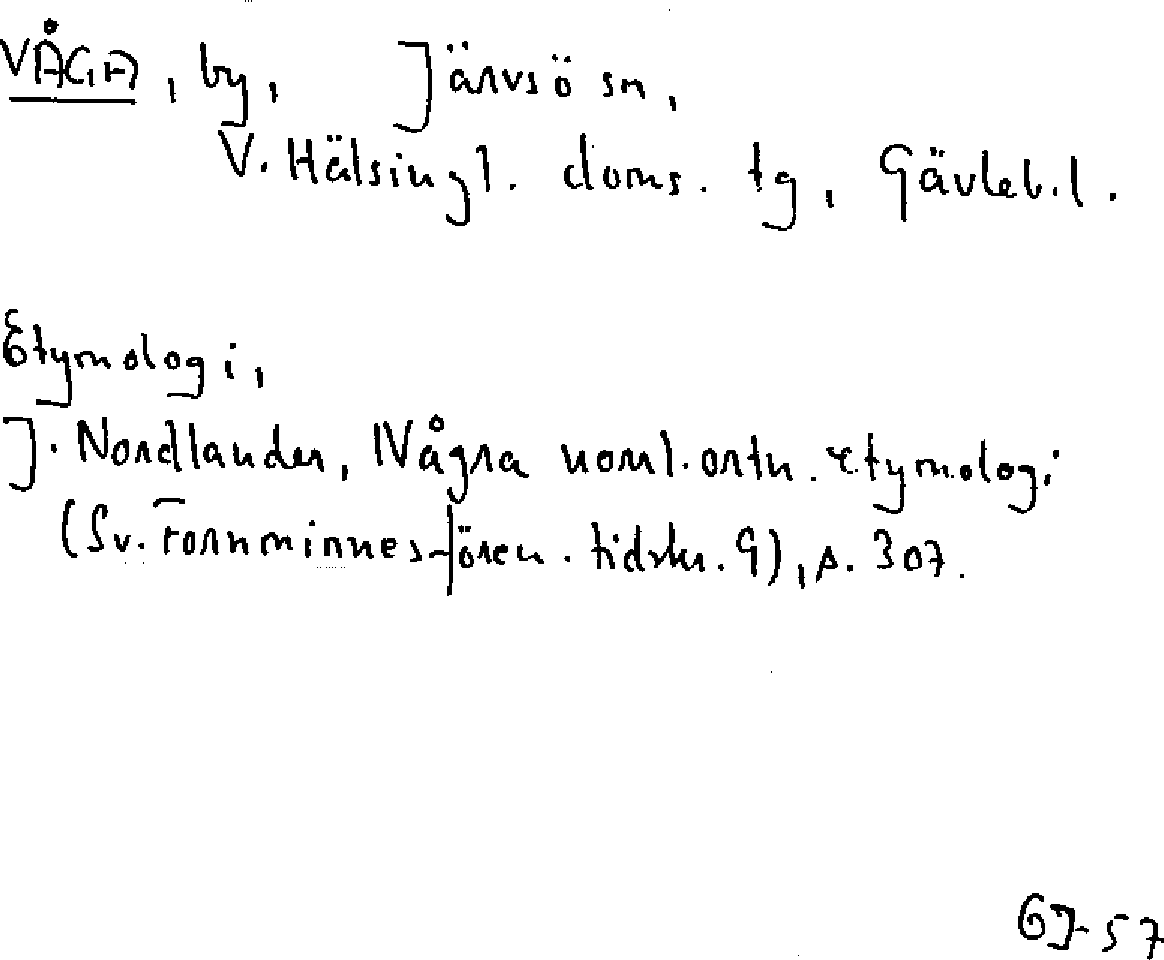 VÅGA, by, Järvsö sn,
V. Hälsingl. doms. tg, Gävleb.l.
Etymologi,
J. Nordlander, Några norrl. ortn. etymologi
(Sv. Fornminnesfören. tidskr. 9), s. 307.
57